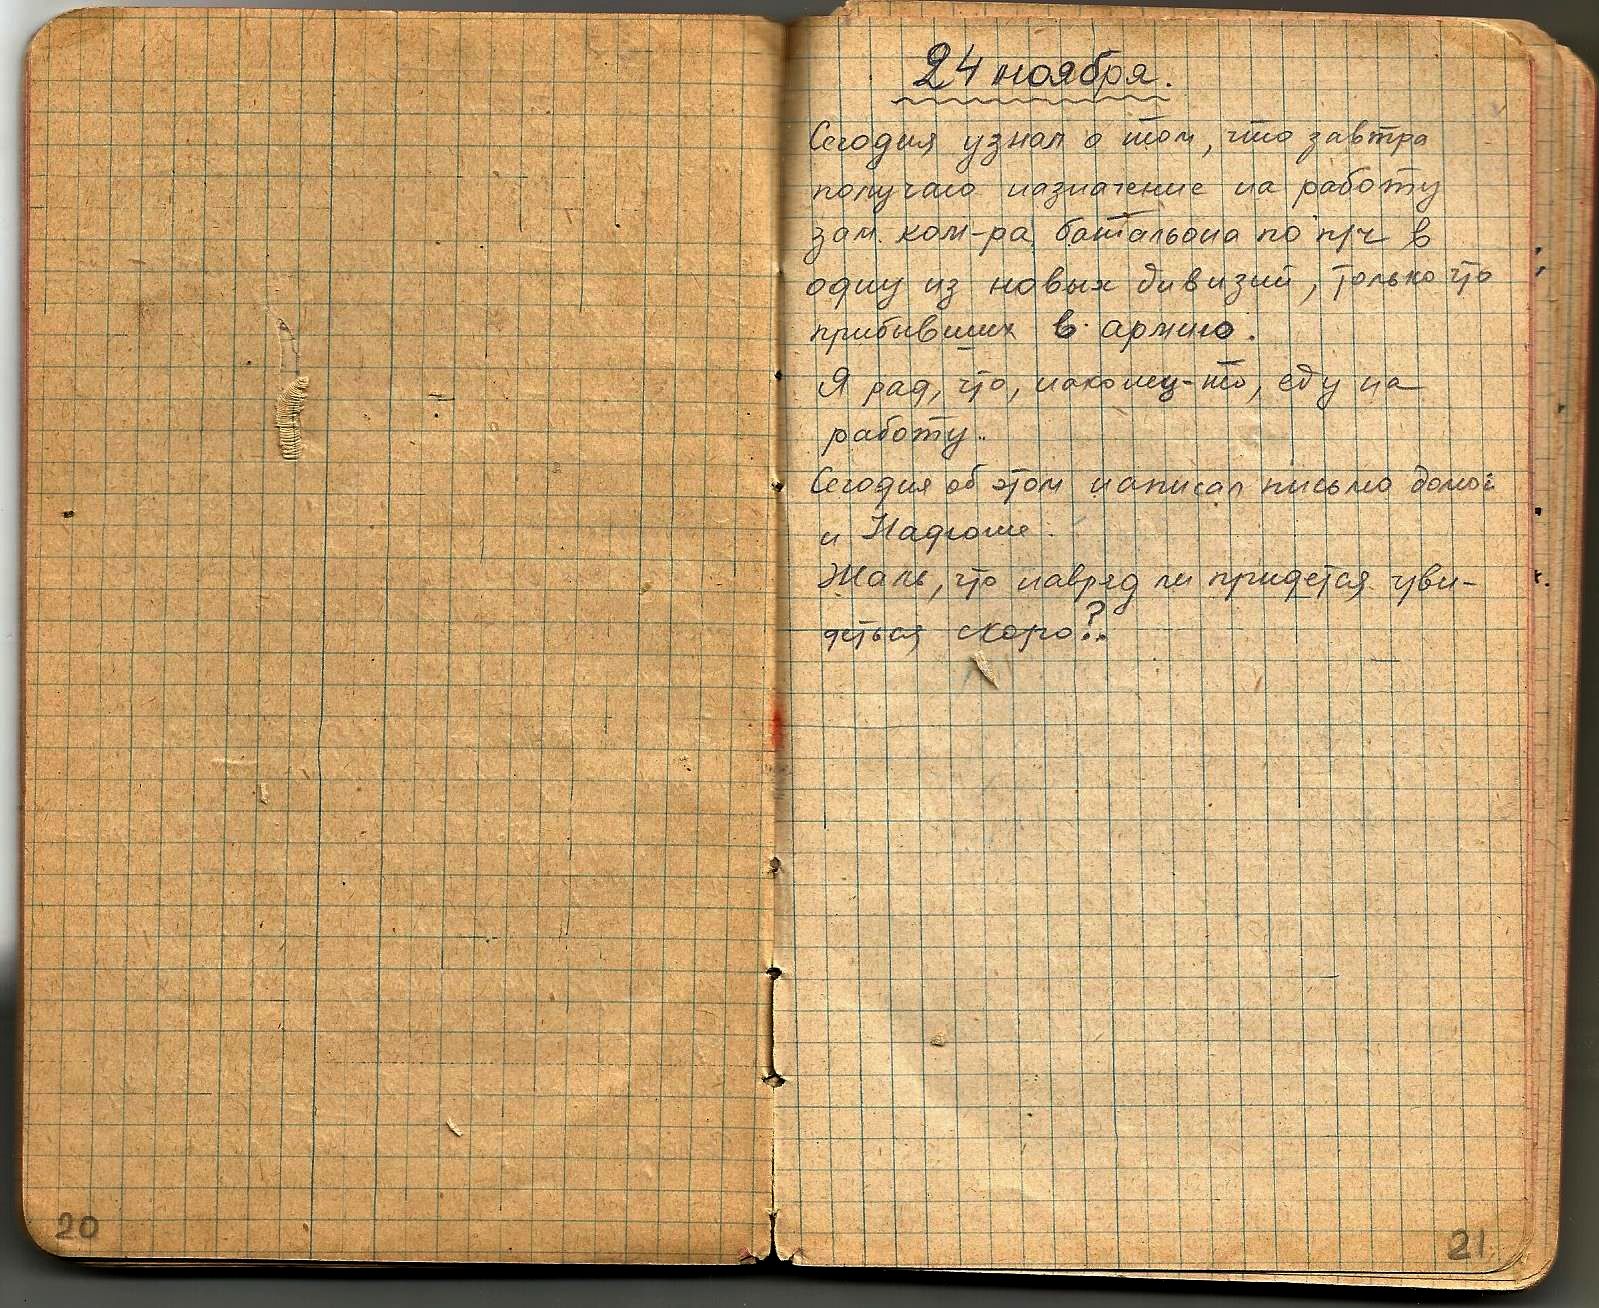 24 ноября.
Сегодня узнал о том, что завтра
получаю назначение на работу
зам. ком-ра батальона по п/ч в
одну из новых дивизий, только что
прибывших в армию.
Я рад, что, наконец-то, еду на
работу.
Сегодня об этом написал письмо домой
и Надюше.
Жаль, что навряд ли придется уви-
деться скоро?..
20
21